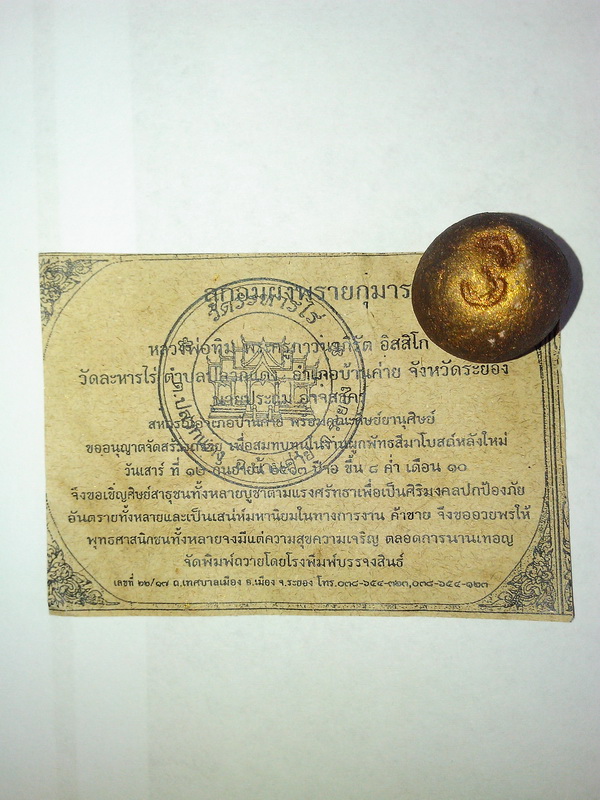 ลูกอมผงพรายกุมาร
หลวงพ่อทิม พระครูภาวนาภิรัต อิสสิโก
วัดละหารไร่ ตำบล อำเภอบ้านค่าย จังหวัดระยอง
นายประถม อาจสาคร
สหกรณ์อำเภอบ้านค่าย พร้อมคณะศิษย์ยานุศิษย์
ขออนุญาตจัดสร้าง เพื่อสมทบทุนในงานผูกพัทธสีมาโบสถ์หลังใหม่
วันเสาร์ ที่ ๑๒ กันยายน ขึ้น ๘ ค่ำ เดือน ๑๐
จึงขอเชิญศิษย์สาธุชนทั้งหลายบูชาตามแรงศรัทธาเพื่อเป็นศิริมงคลปกป้องภัย
อันตรายทั้งหลายและเป็นเสน่ห์มหานิยมในทางการงาน ค้าขาย จึงขออวยพรให้
พุทธศาสนิกชนทั้งหลายจงมีแต่ความสุขความเจริญ ตลอดการนานเทอญ
จัดพิมพ์ถวายโดยโรงพิมพ์บรรจงสินธ์
เลขที่ ๒๒/๑๗ ถ.เทศบาลเมือง อ.เมือง จ.ระยอง โทร.๐๓๘-๖๕๔-๓๒๓,๐๓๘-๖๕๔-๑๒๓
วัดละหารไร่